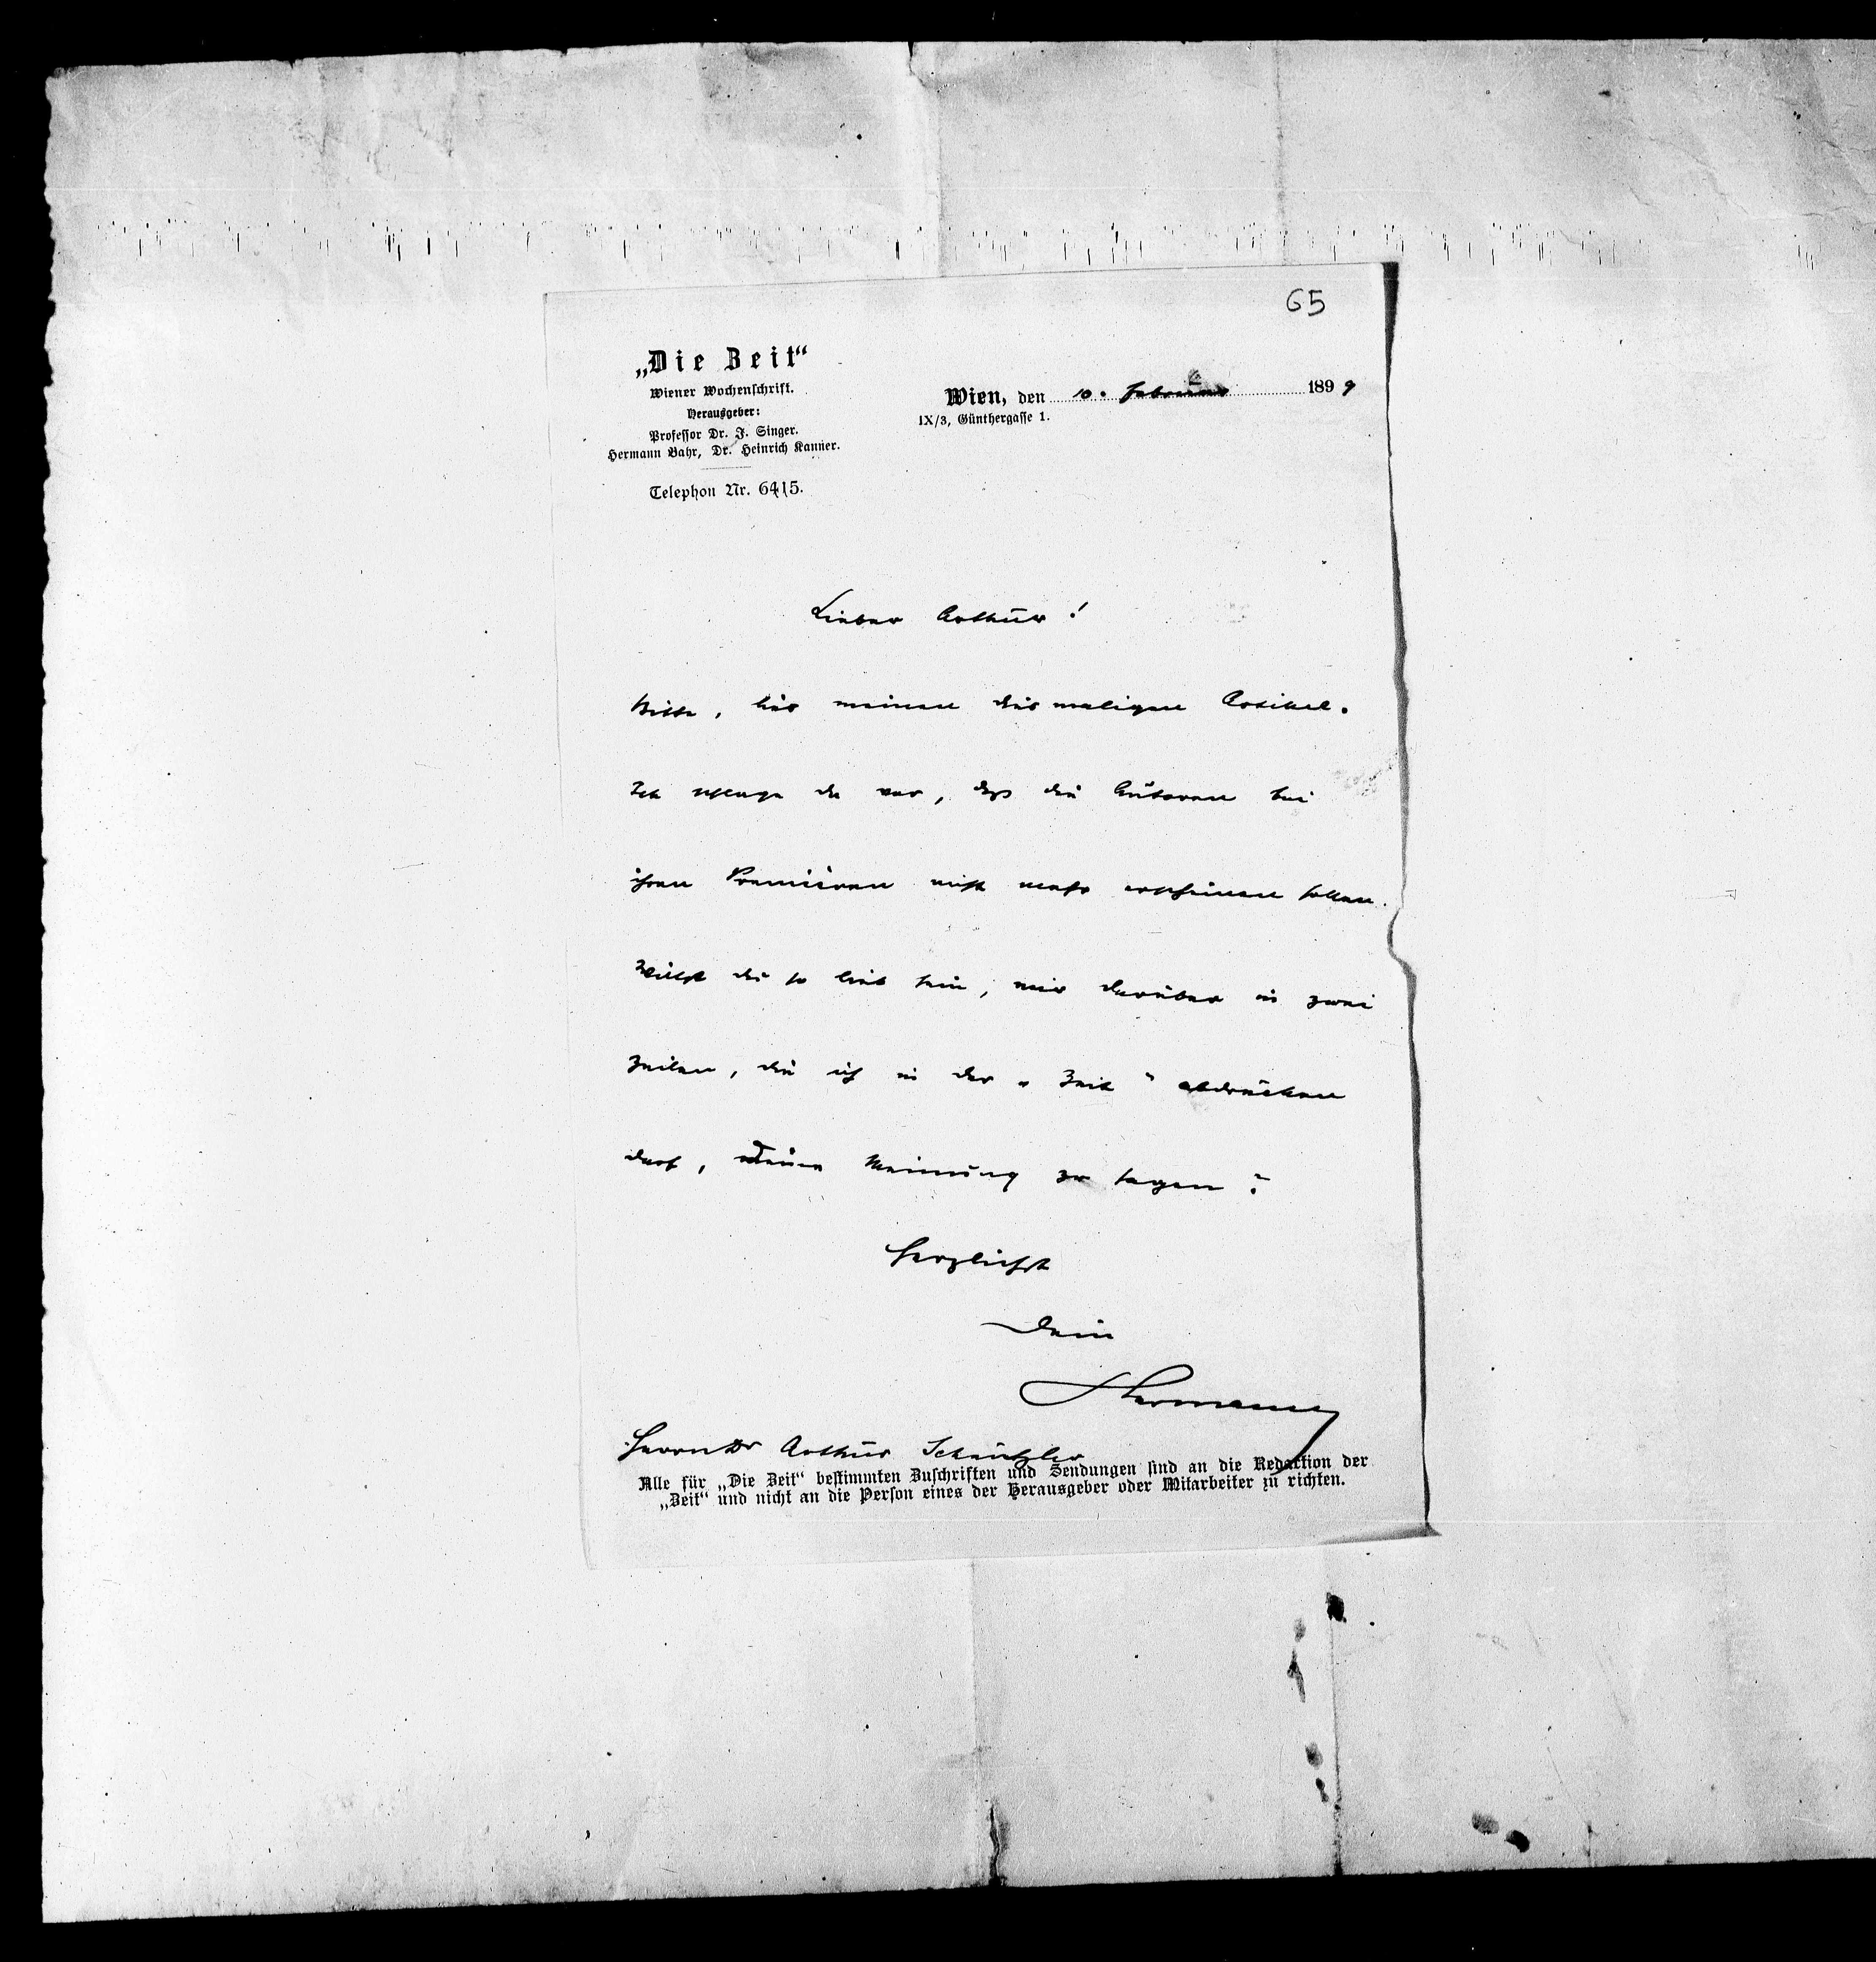 65
„Die Zeit“
Wiener Wochenschrift.
Herausgeber:
Professor Dr. J. Singer.
Hermann Bahr, Dr. Heinrich Kanner.
Telephon Nr. 6415.
Wien, den 10. Februar 1899
IX/3, Günthergasse 1.
Lieber Arthur!
Bitte, lies meinen diesmaligen Artikel.
Ich schlage da vor, dass die Autoren bei
ihren Premièren nicht mehr erscheinen sollen.
Willst du so lieb sein, mir darüber in zwei
Zeilen, die ich in der „Zeit“ abdrucken
darf, Deine Meinung zu sagen?
Herzlichst
Dein
Hermann
Herrn Dr Arthur Schnitzler
Alle für „Die Zeit“ bestimmten Zuschriften und Sendungen sind an die Redaction der
„Zeit“ und nicht an die Person eines der Herausgeber oder Mitarbeiter zu richten.